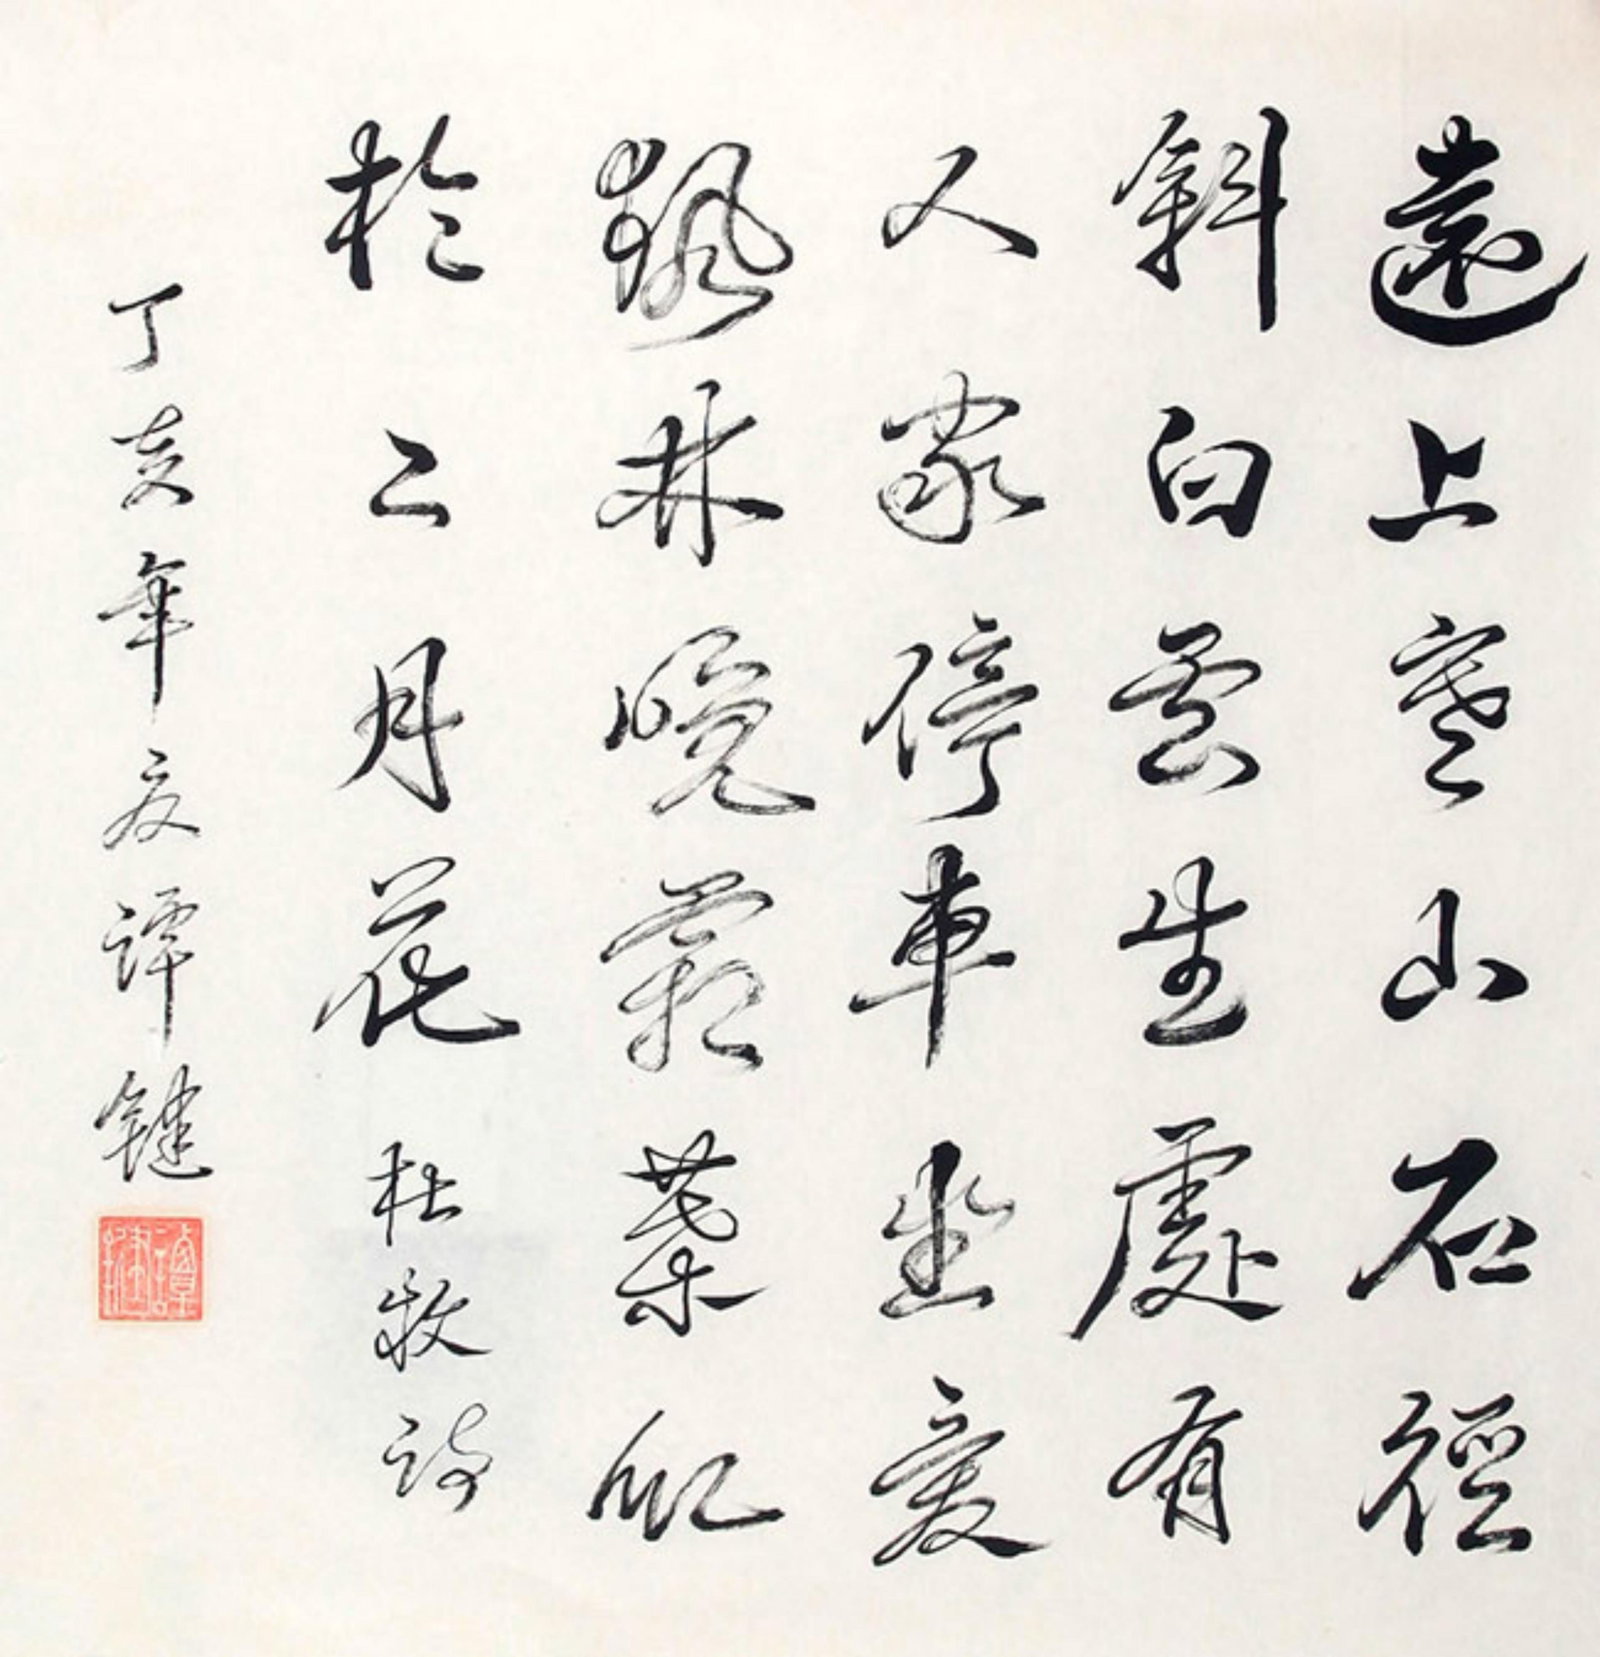 遠上寒山石徑
斜白雲生處有
人家停車坐愛
楓林晚霜葉紅
於二月花 杜牧詩
丁亥年夏譚鍵
譚鍵